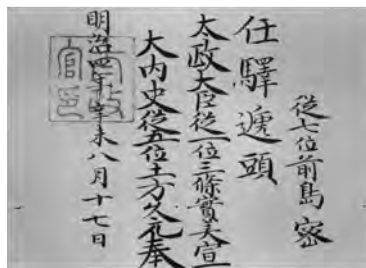 從七位前島密
任驛遞頭
太政大臣從一位三條實美宣
大内史從五位土方久元奉
明治四年辛未八月十七日